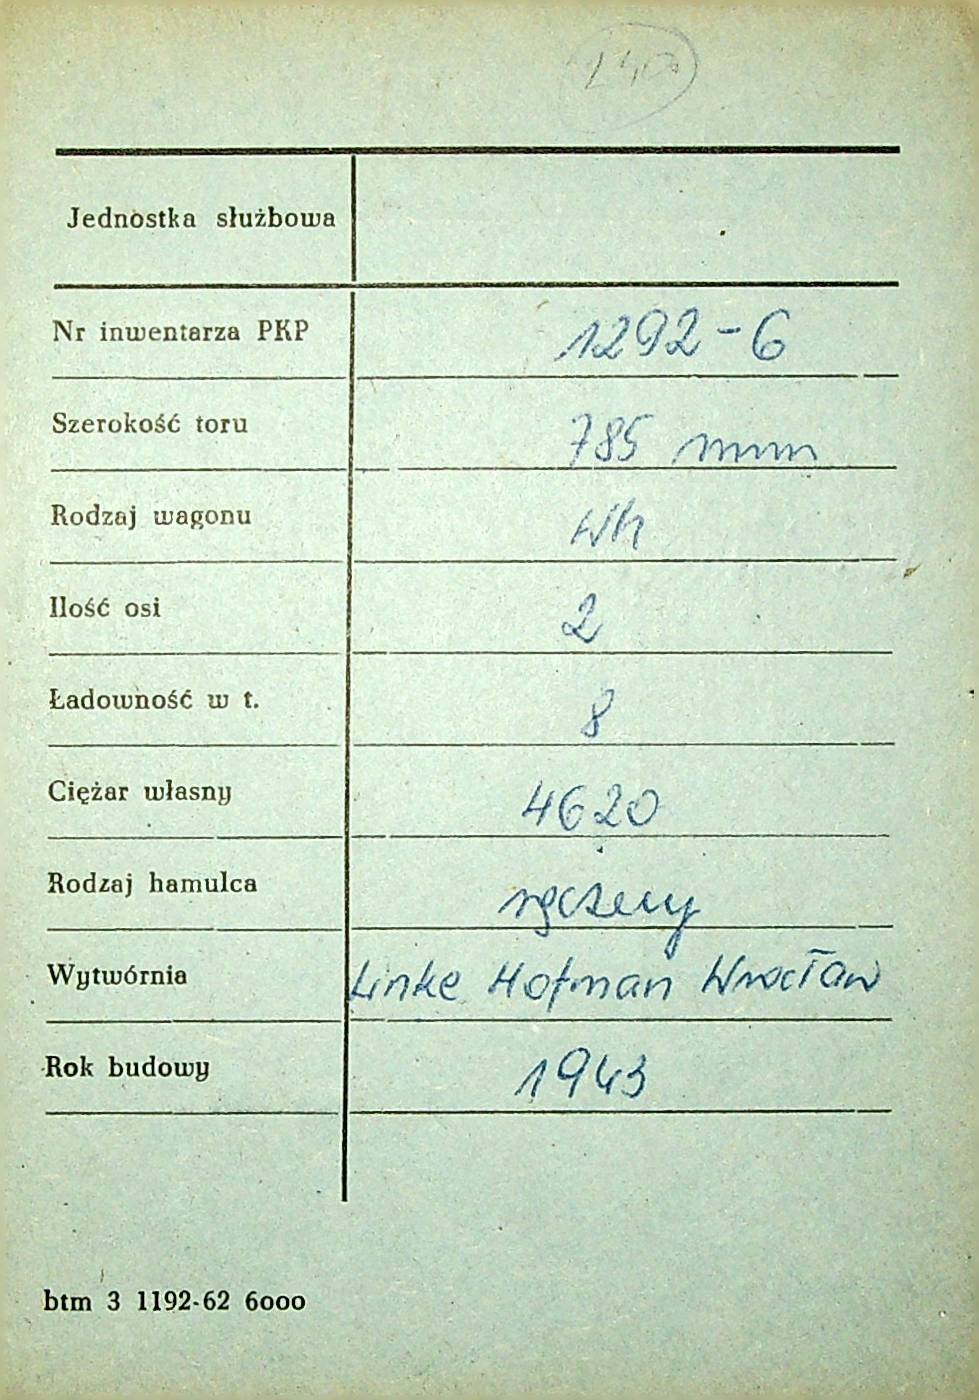 Jednostka służbowa
Nr inwentarza PKP 1292-6
Szerokość toru 785 mm
Rodzaj wagonu Wh
Ilość osi 2
Ładowność w t. 8
Ciężar własny 4620
Rodzaj hamulca ręczny
Wytwórnia Linke Hofman Wrocław
Rok budowy 1943
btm 3 1192-62 6000